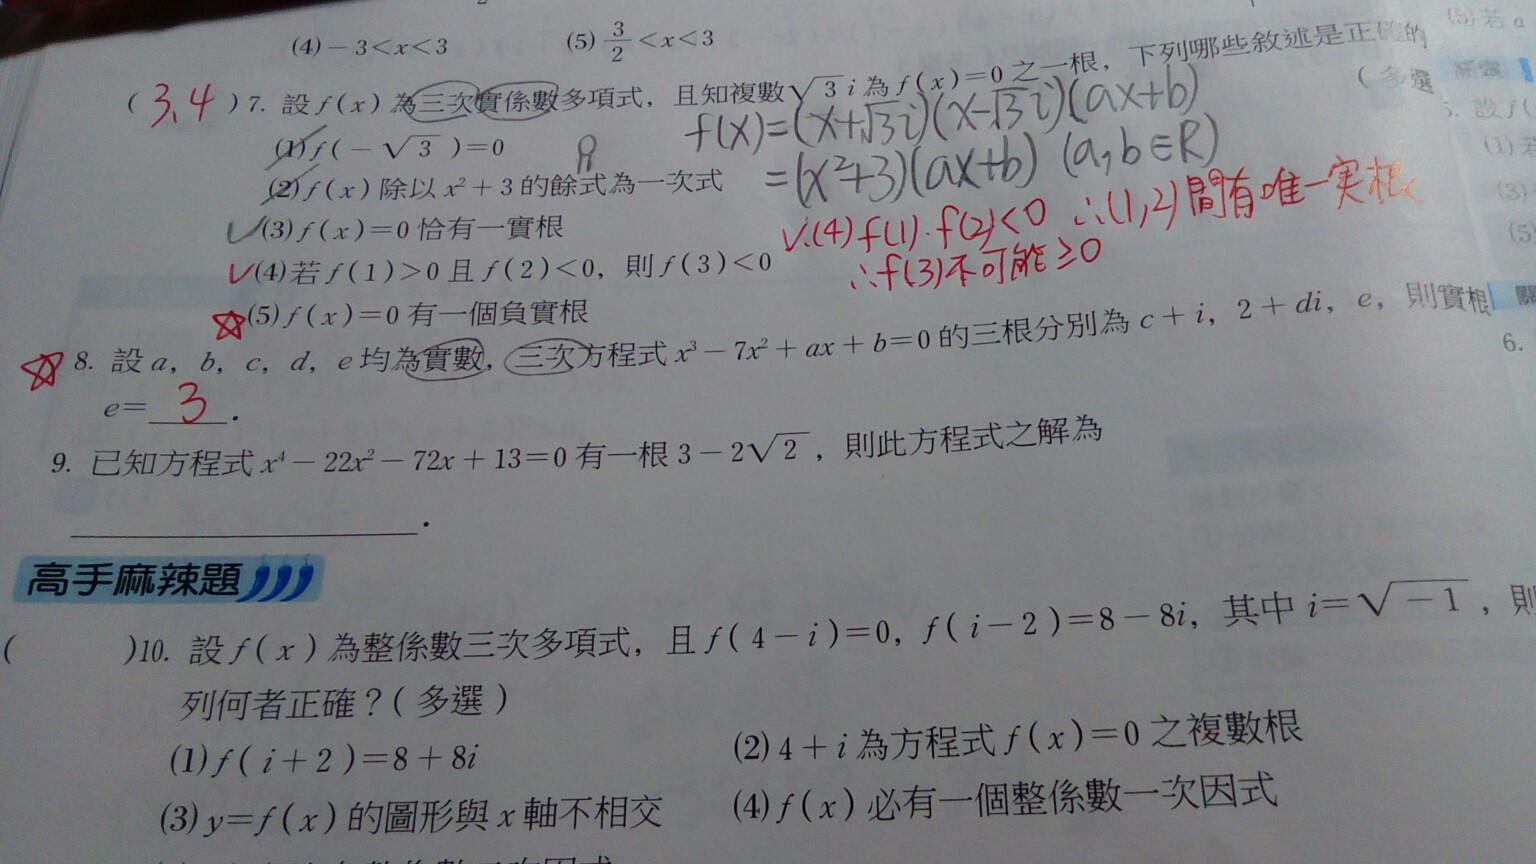 (4)－3<x<3
(5) 3/2 <x<3
(5)若a
( 3,4 )7. 設f(x)為三次實係數多項式，且知複數√3 i為f(x)=0之一根，下列哪些敘述是正確的
(多選
f(x)=(x+√3i)(x-√3i)(ax+b)
(1)f(－√3)=0
=(x²+3)(ax+b) (a,b∈R)
(2)f(x)除以x²+3的餘式為一次式
(3)f(x)=0恰有一實根
√.(4)f(1)·f(2)<0 ∴(1,2)間有唯一實根
(4)若f(1)>0且f(2)<0，則f(3)<0
∴f(3)不可能≥0
(5)f(x)=0有一個負實根
8. 設a，b，c，d，e均為實數，三次方程式x³－7x²+ax+b=0的三根分別為c+i，2+di，e，則實根
e= 3 .
9. 已知方程式x⁴－22x²－72x+13=0有一根3－2√2，則此方程式之解為
.
高手麻辣題
( )10. 設f(x)為整係數三次多項式，且f(4－i)=0，f(i－2)=8－8i，其中i=√－1，則
列何者正確？(多選)
(1)f(i+2)=8+8i
(2)4+i為方程式f(x)=0之複數根
(3)y=f(x)的圖形與x軸不相交
(4)f(x)必有一個整係數一次因式
5. 設f(
(1)若
(3)
(5)
6.